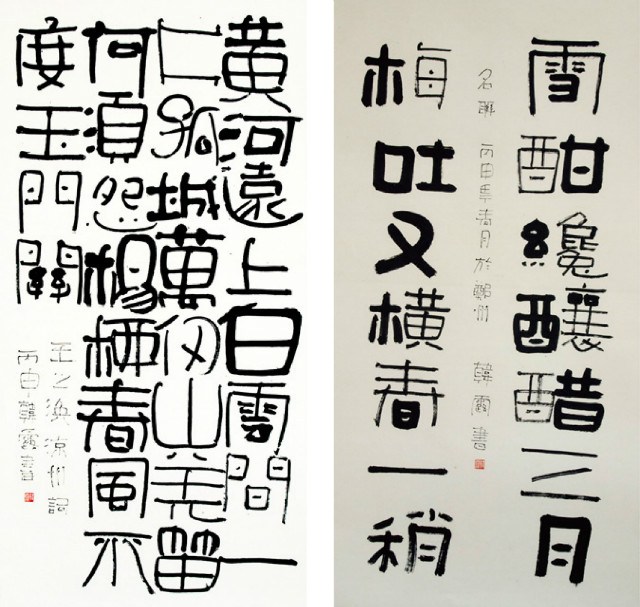 黄河遠上白雲間一
片孤城萬仞山羌笛
何須怨楊柳春風不
度玉門關
王之涣凉州詞
丙申韓書
雪酣纔釀醋三月
梅吐又橫春一稍
名聯 丙申年春月於鄭州 韓書